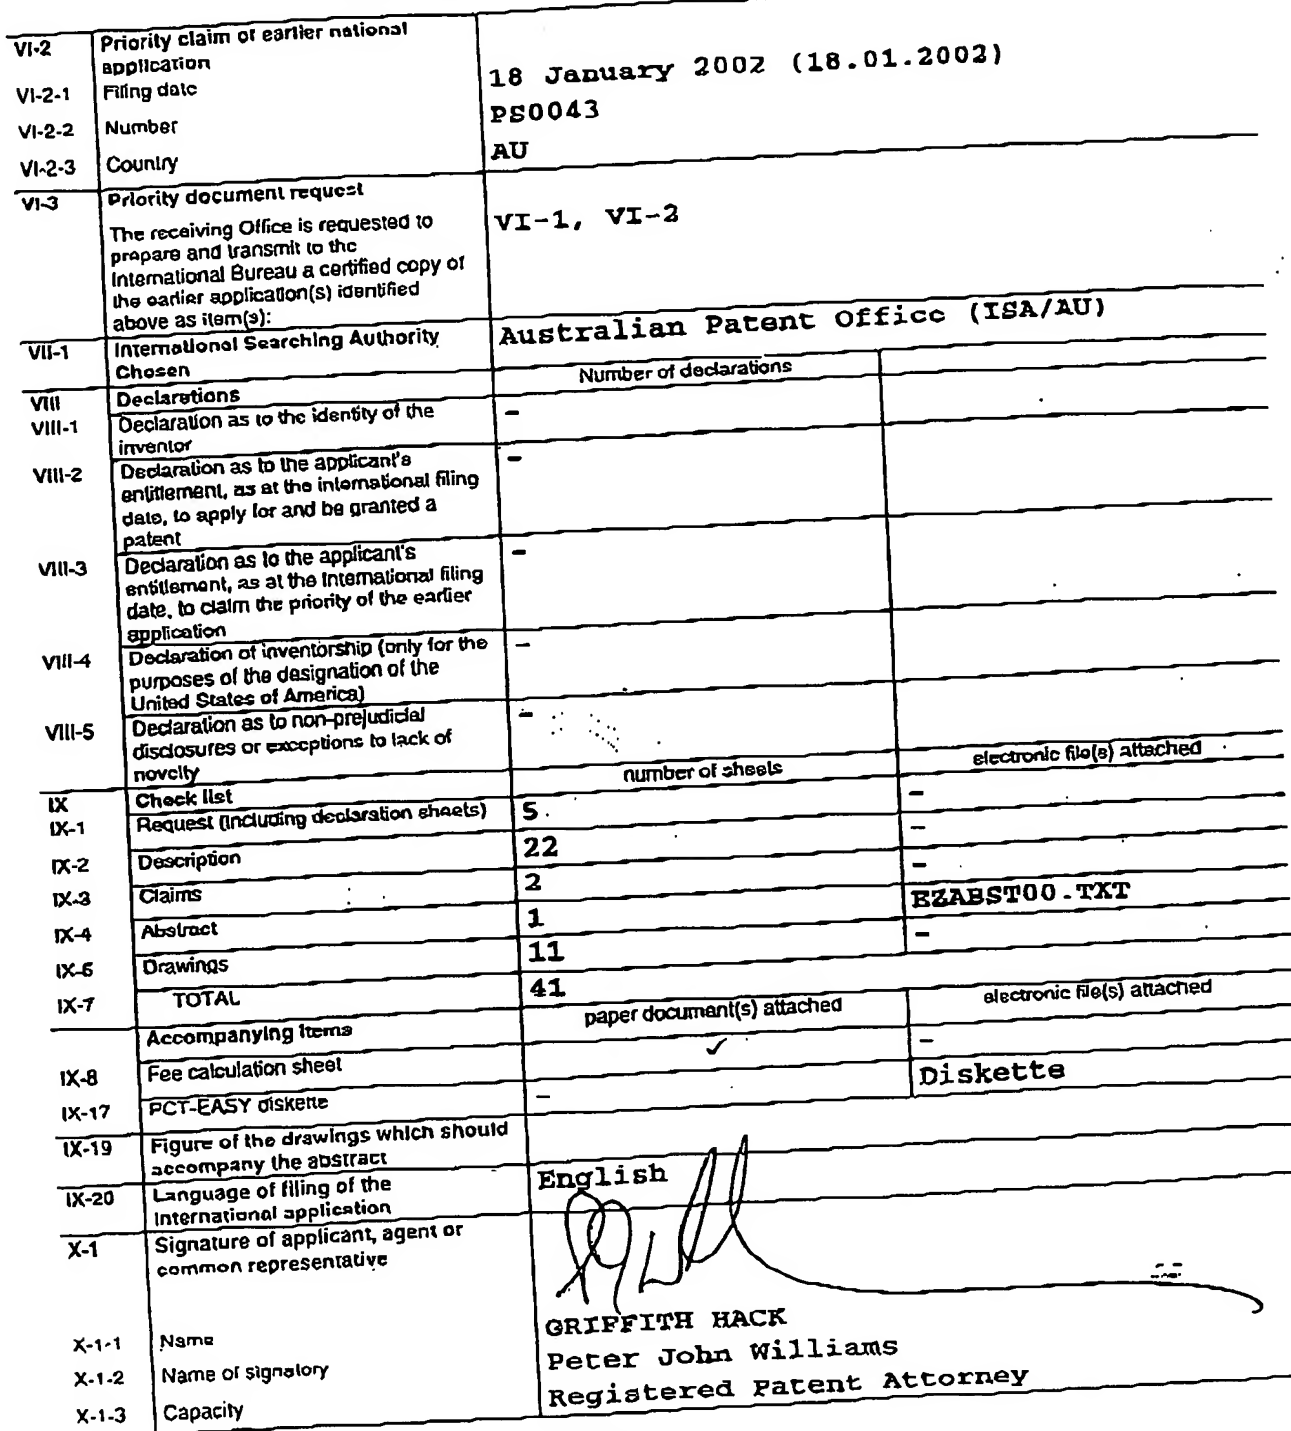 VI-2 Priority claim of earlier national
application
VI-2-1 Filing date 18 January 2002 (18.01.2002)
VI-2-2 Number PS0043
VI-2-3 Country AU
VI-3 Priority document request
The receiving Office is requested to VI-1, VI-2
prepare and transmit to the
International Bureau a certified copy of
the earlier application(s) identified
above as item(s):
VII-1 International Searching Authority Australian Patent Office (ISA/AU)
Chosen
VIII Declarations Number of declarations
VIII-1 Declaration as to the identity of the -
inventor
VIII-2 Declaration as to the applicant's -
entitlement, as at the international filing
date, to apply for and be granted a
patent
VIII-3 Declaration as to the applicant's -
entitlement, as at the international filing
date, to claim the priority of the earlier
application
VIII-4 Declaration of inventorship (only for the -
purposes of the designation of the
United States of America)
VIII-5 Declaration as to non-prejudicial -
disclosures or exceptions to lack of
novelty
IX Check list number of sheets electronic file(s) attached
IX-1 Request (including declaration sheets) 5 -
IX-2 Description 22 -
IX-3 Claims 2 -
IX-4 Abstract 1 EZABST00.TXT
IX-5 Drawings 11 -
IX-7 TOTAL 41
Accompanying items paper document(s) attached electronic file(s) attached
IX-8 Fee calculation sheet ✓ -
IX-17 PCT-EASY diskette - Diskette
IX-19 Figure of the drawings which should
accompany the abstract
IX-20 Language of filing of the English
international application
X-1 Signature of applicant, agent or
common representative
X-1-1 Name GRIFFITH HACK
X-1-2 Name of signatory Peter John Williams
X-1-3 Capacity Registered Patent Attorney